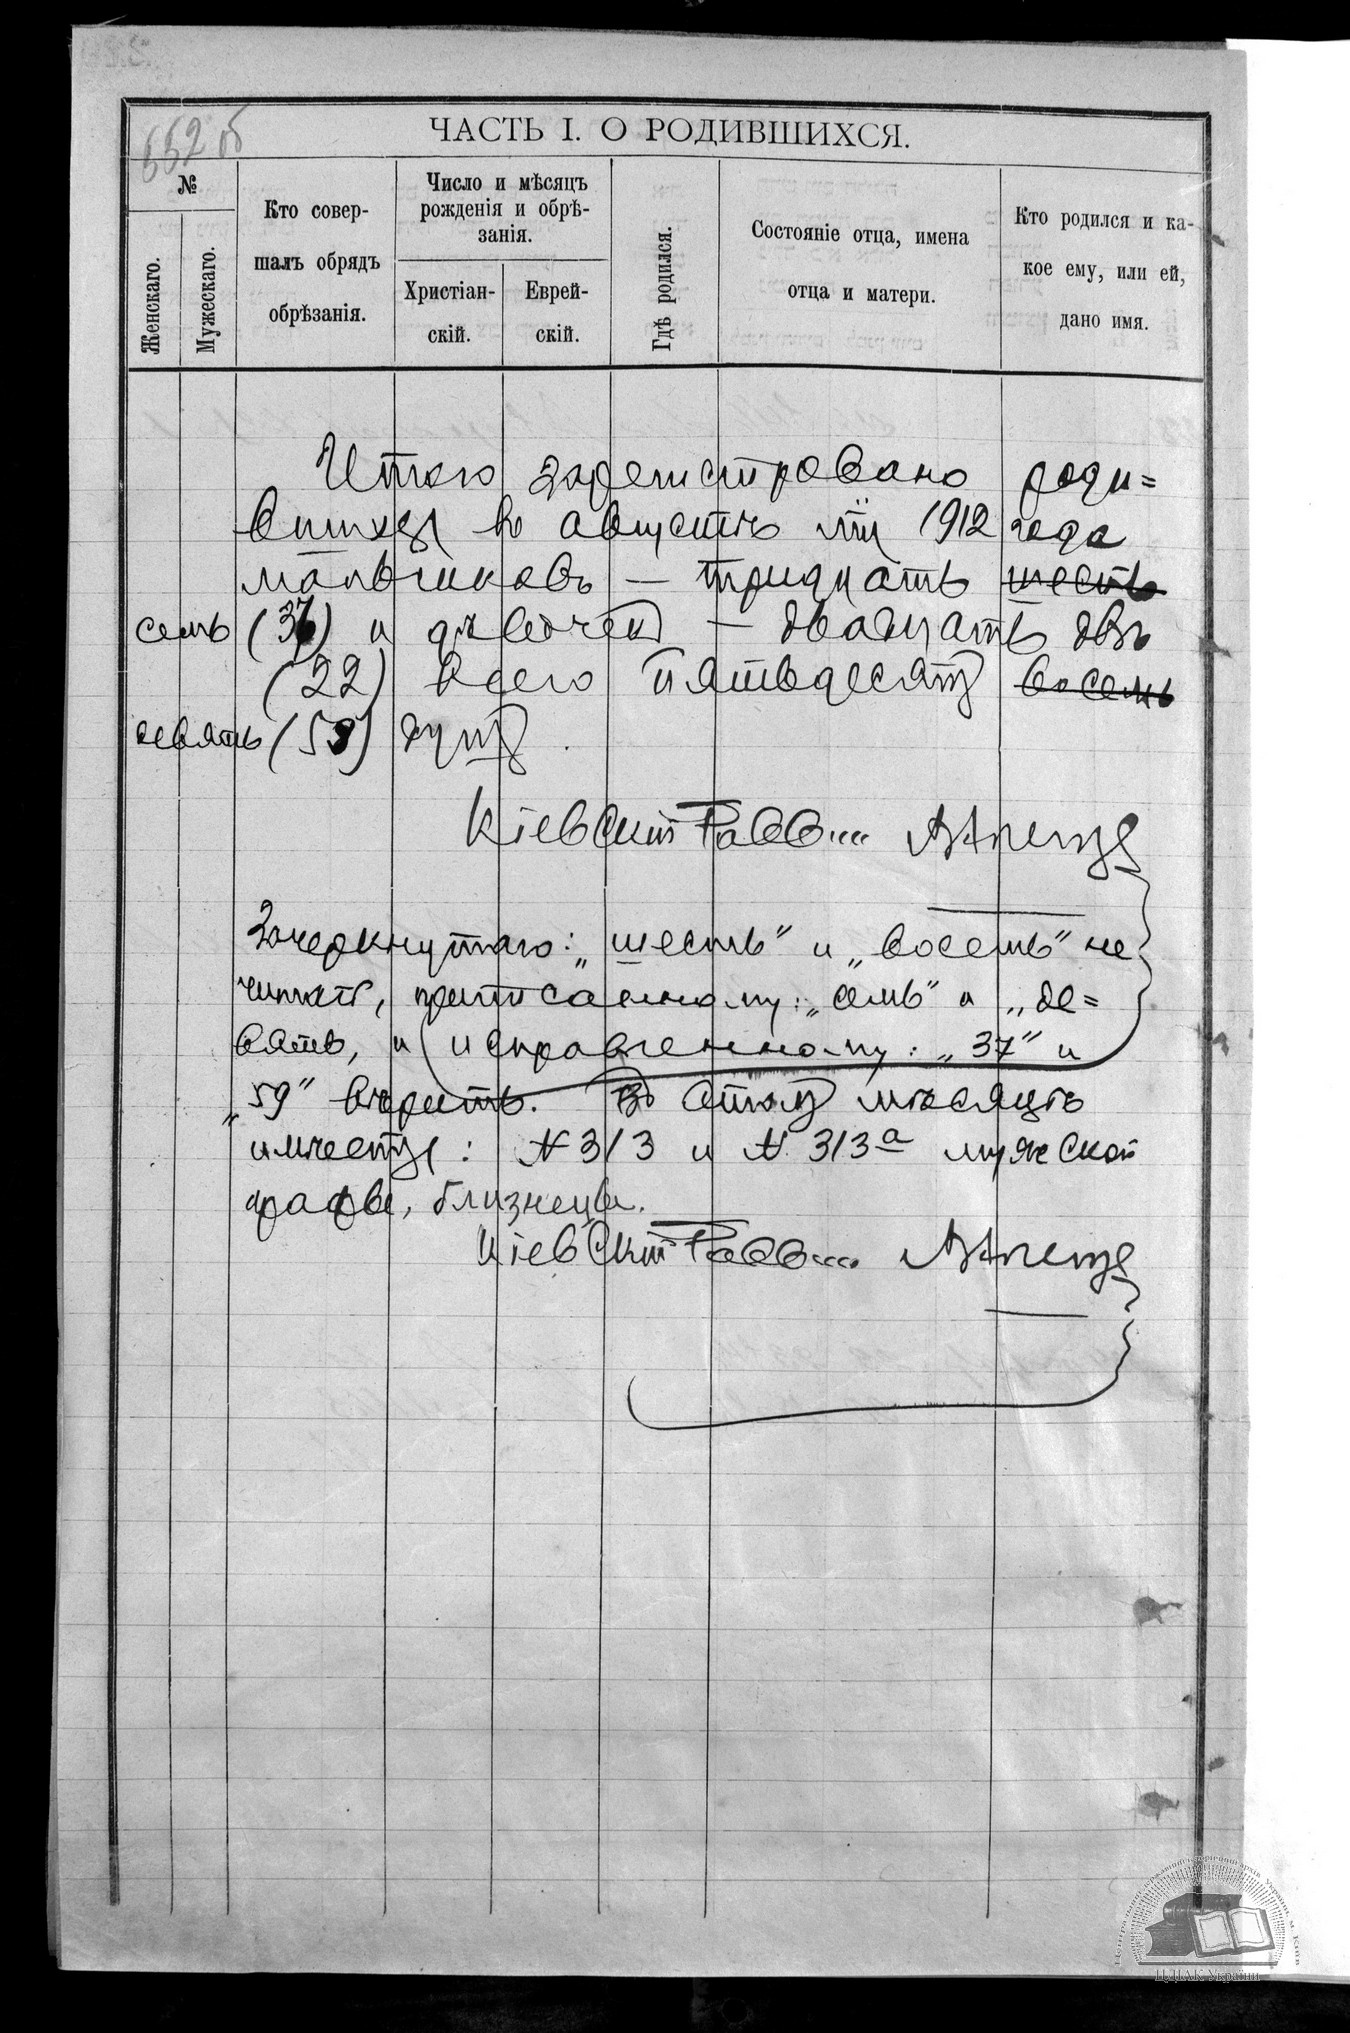 552 об
ЧАСТЬ I. О РОДИВШИХСЯ.
№
Женскаго.
Мужескаго.
Кто совер-
шалъ обрядъ
обрѣзанія.
Число и мѣсяцъ
рожденія и обрѣ-
занія.
Христіан-
скій.
Еврей-
скій.
Гдѣ родился.
Состояніе отца, имена
отца и матери.
Кто родился и ка-
кое ему, или ей,
дано имя.
Итого зарегистровано роди=
вшихся въ августѣ м-цѣ 1912 года
мальчиковъ — тридцать шесть
семь (37) и дѣвочекъ — двадцать двѣ
(22) всего пятьдесятъ восемь
девять (59) душъ.
Кіевскій Равв....
Зачеркнутаго: „шесть" и „восемь" не
читать, приписанному: „семь" и „де=
вять, и исправленному: „37" и
„59" вѣрить. Въ этомъ мѣсяцѣ
имѣется: № 313 и № 313а мужской
графы, близнецы.
Кіевскій Равв....
Центральний державний історичний архів України, м. Київ
ЦДІАК України